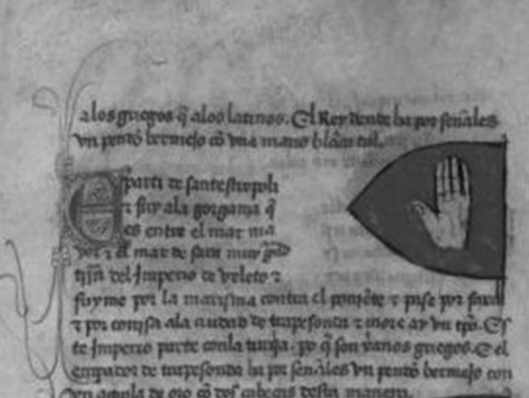 a los griegos q̃ a los latinos. El Rey dende ha por señales
vn pendõ bermejo cõ vna mano blãca tal.
Eparti de santestropoli
z fuy a la gorgania q̃
es entre el mar ma
yor z el mar de sara muy
del Imperio de vleto z
fuyme por la marisma contra el poniẽte z pase por
z por corisa a la ciudad de trapesonda z more ay vn tpõ. Es
te Imperio parte con la turqia. po q̃ son griegos. E el
enpador de trapesonda ha por señales vn pendõ bermejo con
vn aguila de oro cõ dos cabeças desta manera.